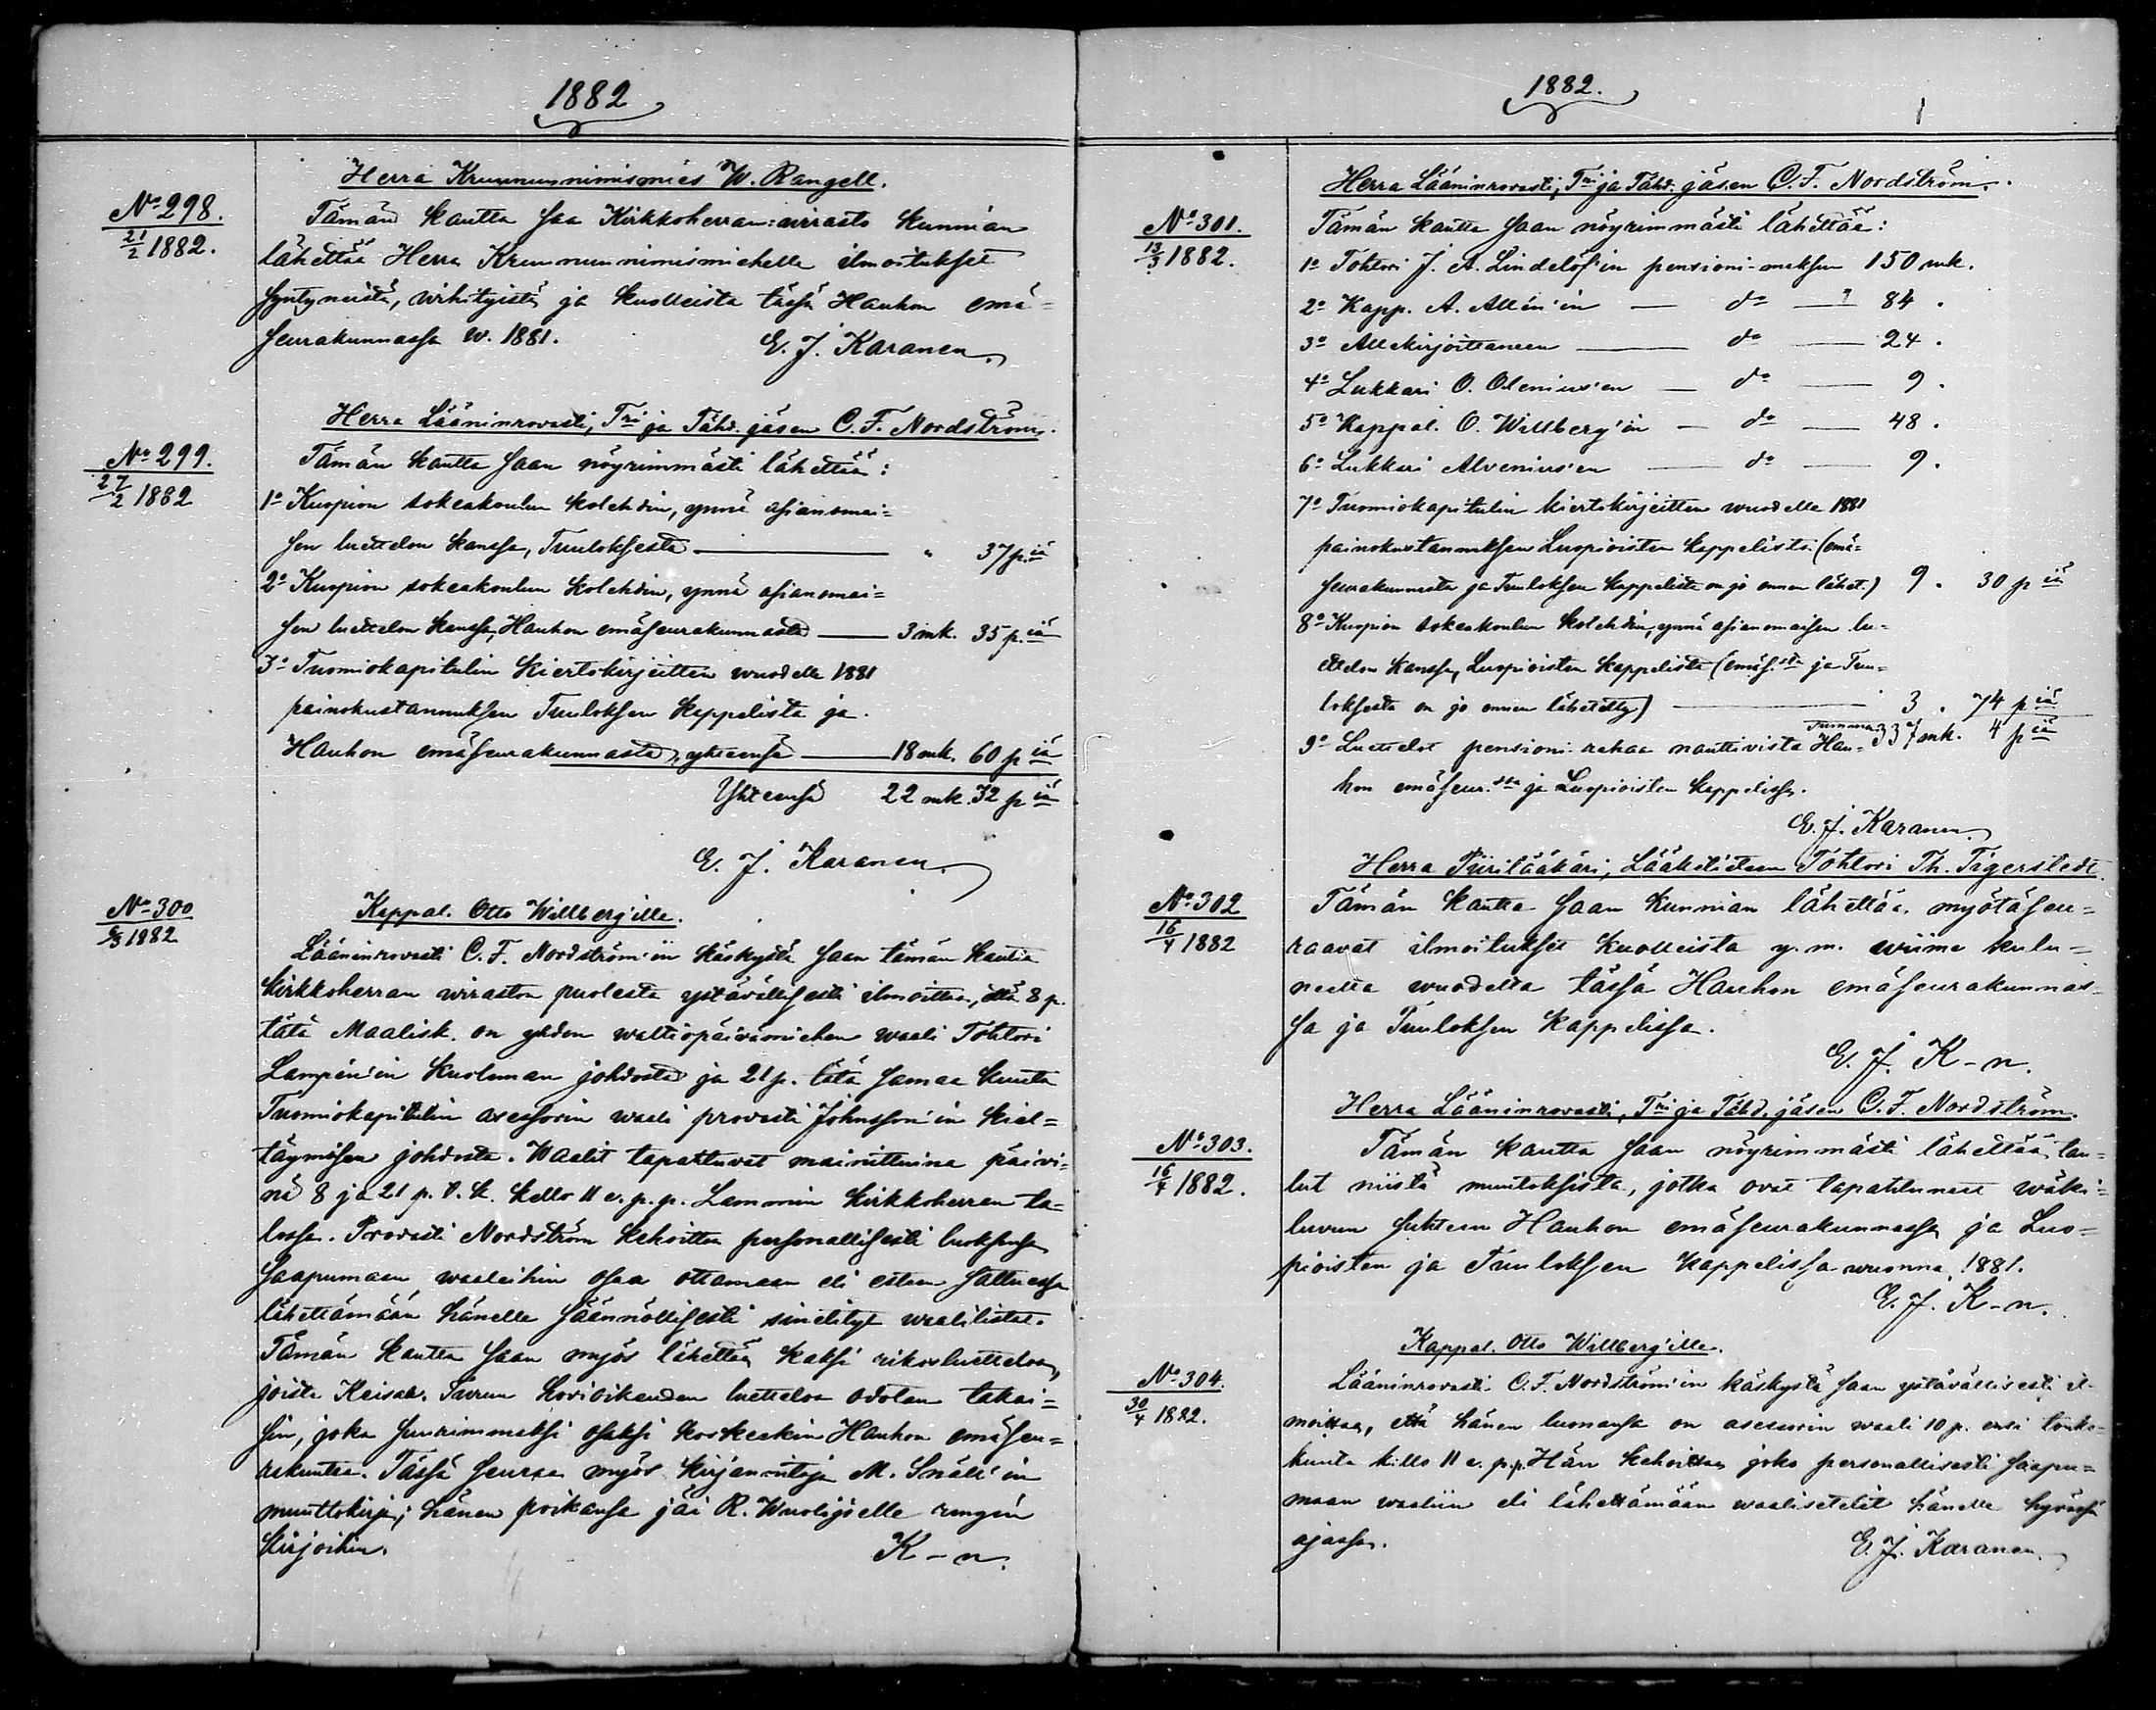 1882
Herra Kruununnimismies W. Rangell.
No 298.
21/2 1882.
Tämän kautta saa Kirkkoherran:wirasto kunnian
lähettää Herra Kruununnimismiehelle ilmoitukset
syntyneistä, wihityistä ja kuolleista tässä Hauhon emä-
seurakunnassa w. 1881.
E. J. Karanen.
Herra Lääninrovasti, Tri ja Tähd. jäsen C. F. Nordström.
No 299.
27/2 1882
Tämän kautta saan nöyrimmästi lähettää:
1o Kuopion sokeakoulun kolehdin, ynnä asianomai=
sen luettelon kanssa, Tuuloksesta — " 37 p:iä
2o Kuopion sokeakoulun kolehdin, ynnä asianomai=
sen luettelon kanssa, Hauhon emäseurakunnasta — 3 mk. 35 p:iä
3o Tuomiokapitulin kiertokirjeitten wuodelle 1881
painokustannuksen Tuuloksen kappelista ja
Hauhon emäseurakunnasta, yhteensä — 18 mk. 60 p:iä
Yhteensä 22 mk. 32 p:iä
E. J. Karanen.
Kappal. Otto Willberg'ille.
No 300
6/3 1882
Lääninrovasti C. F. Nordström'in käskystä saan tämän kautta
kirkkoherran wiraston puolesta ystävällisesti ilmoittaa, että 8 p.
tätä Maalisk. on yhden waltiopäivämiehen waali Tohtori
Lampén'in kuoleman johdosta ja 21 p. tätä samaa kuuta
Tuomiokapitulin asessorin waali provasti Johnsson'in kiel=
täymisen johdosta. Waalit tapahtuvat mainittuina päivi=
nä 8 ja 21 p. t. k. kello 11 e. p. p. Lammin kirkkoherran ta=
lossa. Provasti Nordström kehoittaa personallisesti luoksensa
saapumaan waaleihin osaa ottamaan eli esteen sattuessa
lähettämään hänelle säännöllisesti sinetityt waalilistat.
Tämän kautta saan myös lähettää kaksi rikosluetteloa,
joista Keisar. Turun hovioikeuden luetteloa odotan takai=
sin, joka suurimmaksi osaksi koskeekin Hauhon emäseu=
rakuntaa. Tässä seuraa myös kirjansitoja M. Snäll'in
muuttokirja; hänen poikansa jäi R. Wuolijoelle rengin
kirjoihin.
K-n.
1882.
Herra Lääninrovasti, Tri ja Tähd. jäsen C. F. Nordström.
No 301.
13/3 1882.
Tämän kautta saan nöyrimmästi lähettää:
1o Tohtori J. A. Lindelöf'in pensioni-maksun 150 mk.
2o Kapp. A. Allén'in — do — 84 .
3o Allekirjoittaneen — do — 24 .
4o Lukkari O. Olenius'en — do — 9 .
5o Kappal. O. Willberg'in — do — 48 .
6o Lukkari Alvenius'en — do — 9 .
7o Tuomiokapitulin kiertokirjeitten wuodelle 1881
painokustannuksen Luopioisten kappelista (emä=
seurakunnasta ja Tuuloksen kappelista on jo ennen lähet.) 9 . 30 p:iä
8o Kuopion sokeakoulun kolehdin, ynnä asianomaisen lu=
ettelon kanssa, Luopioisten kappelista (emäs:sta ja Tuu=
loksesta on jo ennen lähetetty) — 3 . 74 p:iä
Summa 337 mk. 4 p:iä
9o Luettelot pensioni-rahaa nauttivista Hau=
hon emäseur:sta ja Luopioisten kappelissa.
E. J. Karanen.
Herra Piirilääkäri, Lääketieteen Tohtori Th. Tigerstedt.
No 302
16/4 1882
Tämän kautta saan kunnian lähettää myötäseu=
raavat ilmoitukset kuolleista y. m. wiime kulu=
neelta wuodelta tässä Hauhon emäseurakunnas=
sa ja Tuuloksen kappelissa.
E. J. K-n.
Herra Lääninrovasti, Tri ja Tähd. jäsen C. F. Nordström.
No 303.
16/4 1882.
Tämän kautta saan nöyrimmästi lähettää tau=
lut niistä muutoksista, jotka ovat tapahtuneet wäki=
luvun suhteen Hauhon emäseurakunnassa ja Luo=
pioisten ja Tuuloksen kappelissa wuonna 1881.
E. J. K-n.
Kappal. Otto Willberg'ille.
No 304.
30/4 1882.
Lääninrovasti C. F. Nordström'in käskystä saan ystävällisesti il-
moittaa, että hänen luonansa on asessorin waali 10 p. ensi touko-
kuuta kello 11 e. p. p. Hän kehoittaa joko personallisesti saapu=
maan waaliin eli lähettämään waalisetelit hänelle hyvässä
ajassa.
E. J. Karanen.